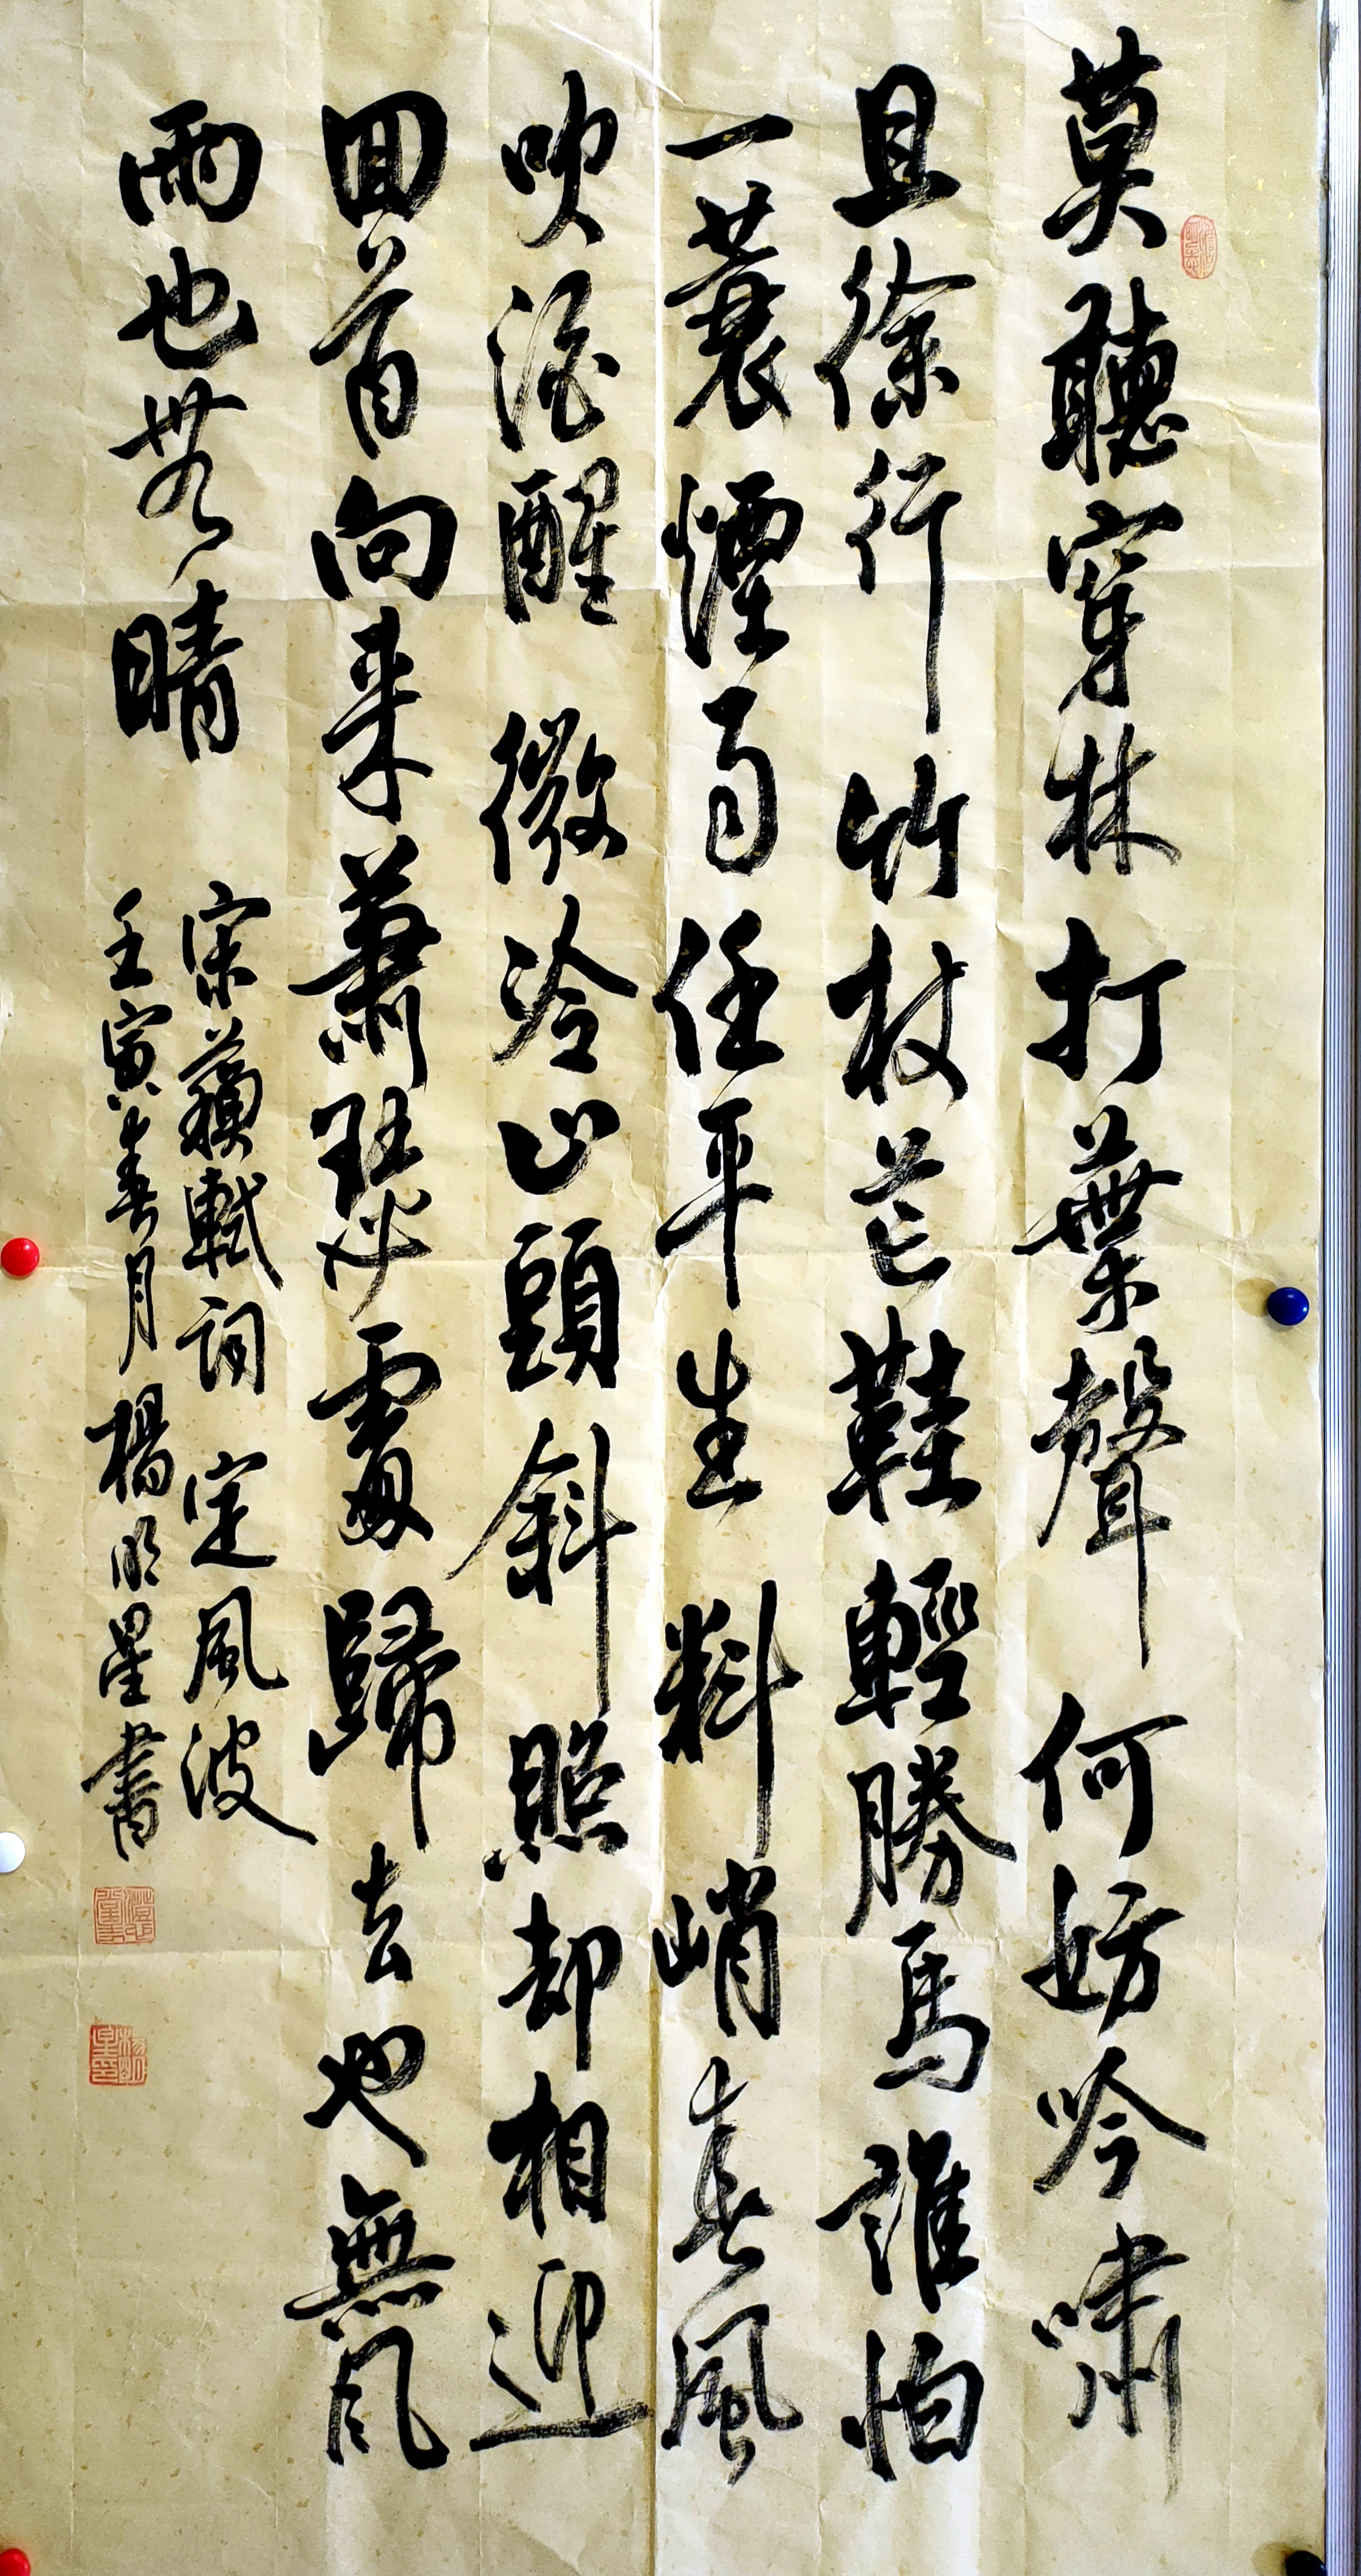 莫聽穿林打葉聲何妨吟嘯
且徐行竹杖芒鞋輕勝馬誰怕
一蓑煙雨任平生料峭春風
吹酒醒微冷山頭斜照却相迎
回首向来蕭瑟處歸去也無風
雨也無晴
宋蘇軾詞定風波
壬寅春月楊明星書
楊明星印